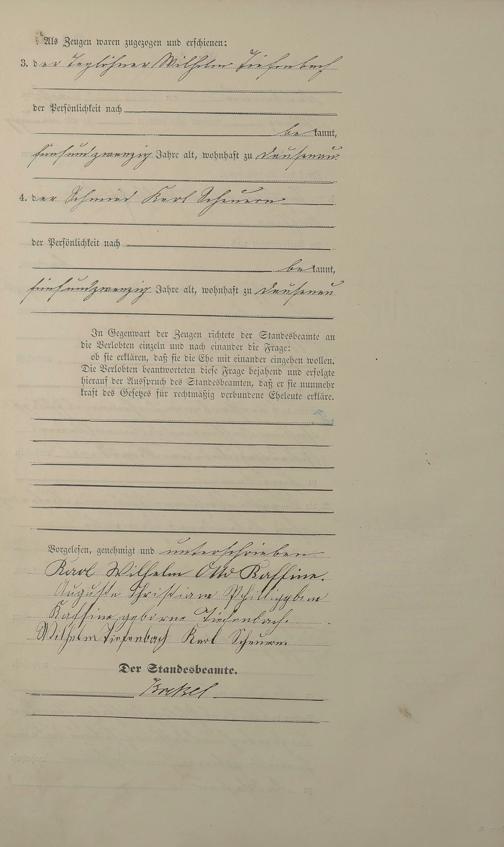 Als Zeugen waren zugezogen und erschienen:
3. der Taglöhner Wilhelm Tiefenbach
der Persönlichkeit nach
be kannt,
fünfundzwanzig Jahre alt, wohnhaft zu Dausenau
4. der Schmied Karl Scheuern
der Persönlichkeit nach
be kannt,
fünfundzwanzig Jahre alt, wohnhaft zu Dausenau
In Gegenwart der Zeugen richtete der Standesbeamte an
die Verlobten einzeln und nach einander die Frage:
ob sie erklären, daß sie die Ehe mit einander eingehen wollen.
Die Verlobten beantworteten diese Frage bejahend und erfolgte
hierauf der Ausspruch des Standesbeamten, daß er sie nunmehr
kraft des Gesetzes für rechtmäßig verbundene Eheleute erkläre.
Vorgelesen, genehmigt und unterschrieben
Karl Wilhelm Otto Kaffine.
Auguste Christiane Philippine
Kaffine geborne Tiefenbach.
Wilhelm Tiefenbach Karl Scheuern
Der Standesbeamte.